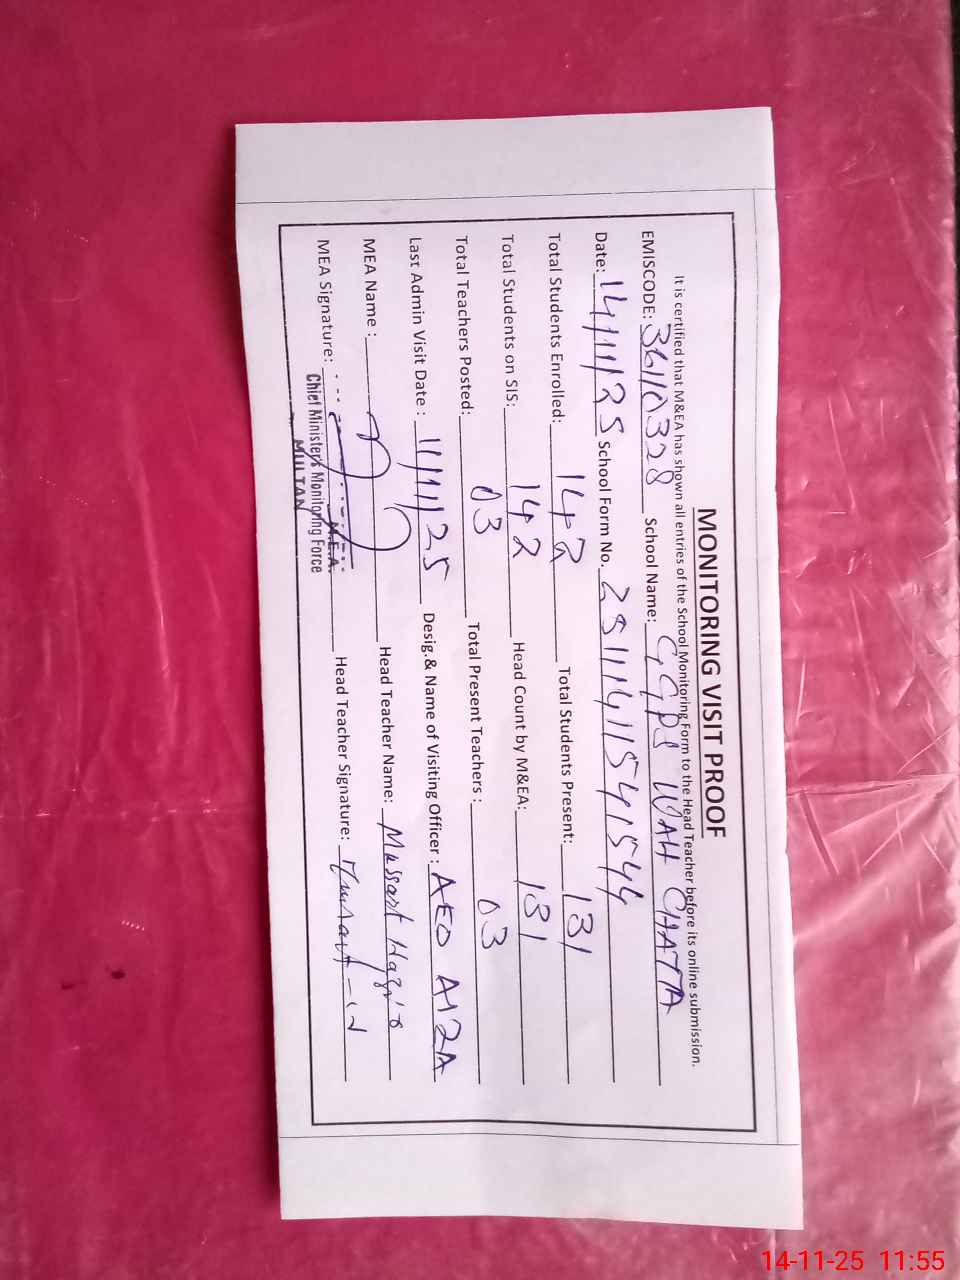 MONITORING VISIT PROOF
It is certified that M&EA has shown all entries of the School Monitoring Form to the Head Teacher before its online submission.
EMISCODE: 36110328 School Name: GGPS WAH CHATTA
Date: 14/11/25 School Form No. 25111411541544
Total Students Enrolled: 142 Total Students Present: 131
Total Students on SIS: 142 Head Count by M&EA: 131
Total Teachers Posted: 03 Total Present Teachers : 03
Last Admin Visit Date : 11/11/25 Desig.& Name of Visiting Officer : AEO
MEA Name : Head Teacher Name: Mussart
MEA Signature: Head Teacher Signature:
M.E.A.
Chief Minister's Monitoring Force
MULTAN
14-11-25 11:55